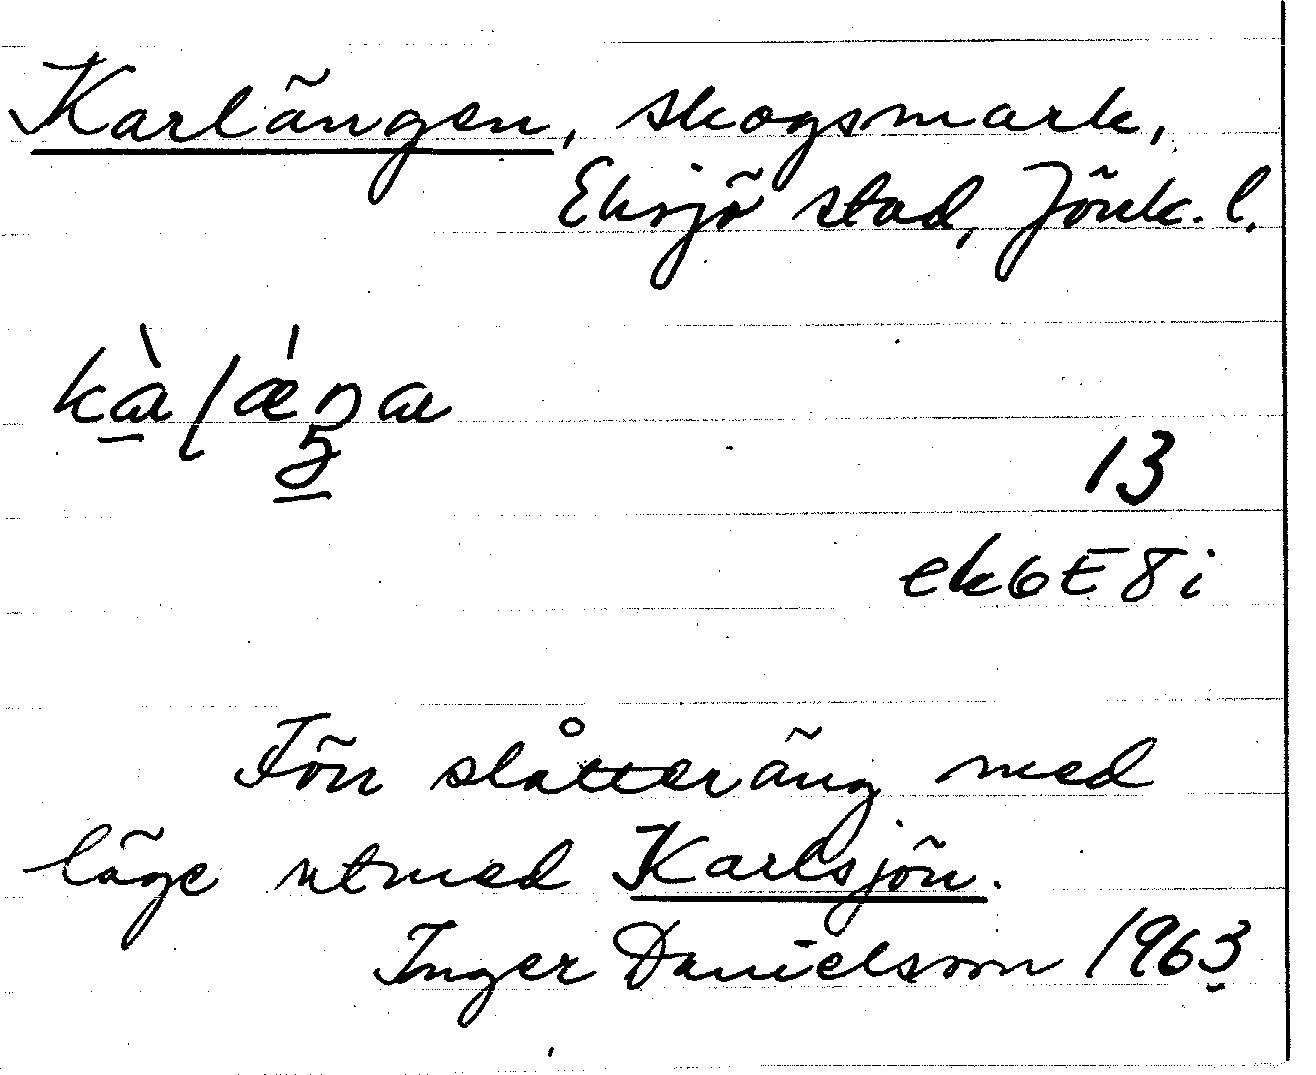 Karlängen, skogsmark,
Eksjö stad, Jönk. l.
13
ek6E8i
Förr slåtteräng med
läge utmed Karlsjön.
Inger Danielsson 1963